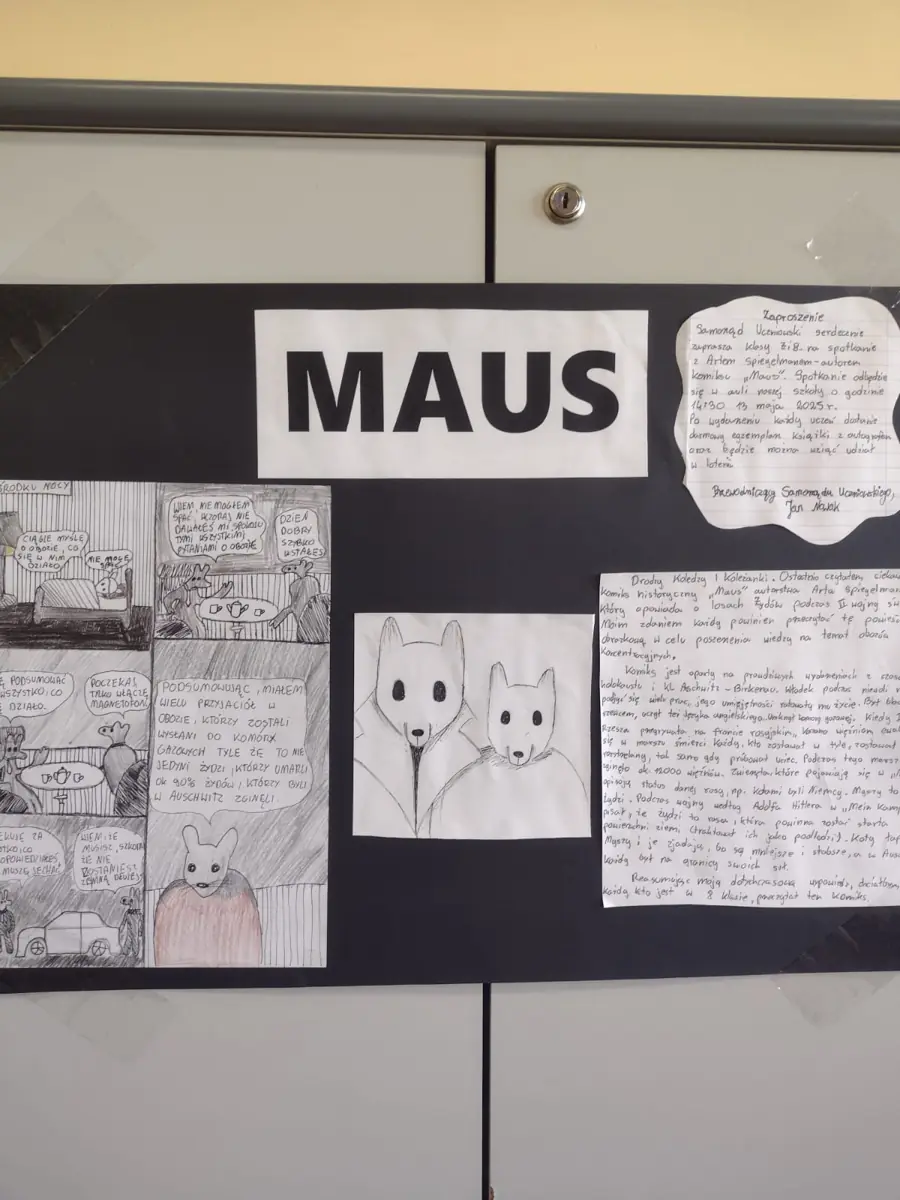 MAUS
Zaproszenie
Samorząd Uczniowski serdecznie
zaprasza klasy 7 i 8 na spotkanie
z Artem Spiegelmanem-autorem
komiksu „Maus". Spotkanie odbędzie
się w auli naszej szkoły o godzinie
14:30 13 maja 2025 r.
Po wydarzeniu każdy uczeń dostanie
darmowy egzemplarz książki z autografem
oraz będzie można wziąć udział
w loterii
Przewodniczący Samorządu Uczniowskiego,
Jan Nowak
ŚRODKU NOCY
CIĄGLE MYŚLĘ
O OBOZIE, CO
SIĘ W NIM
DZIAŁO
NIE MOGĘ
SPAĆ
WIEM, NIE MOGŁEM
SPAĆ, WCZORAJ NIE
DAWAŁEŚ MI SPOKOJU
TYMI WSZYSTKIMI
PYTANIAMI O OBOZIE
DZIEŃ
DOBRY
SZYBKO
WSTAŁEŚ
PODSUMOWAĆ
WSZYSTKO, CO
DZIAŁO.
POCZEKAJ,
TYLKO WŁĄCZĘ
MAGNETOFON
PODSUMOWUJĄC, MIAŁEM
WIELU PRZYJACIÓŁ W
OBOZIE, KTÓRZY ZOSTALI
WYSŁANI DO KOMÓR
GAZOWYCH TYLE ŻE TO NIE
JEDYNI ŻYDZI, KTÓRZY UMARLI
OK 90% ŻYDÓW, KTÓRZY BYLI
W AUSCHWITZ ZGINĘLI.
ZA
CO
MUSZĘ JECHAĆ
WIEM, ŻE
MUSISZ, SZKODA
ŻE NIE
ZOSTANIESZ
ZE MNĄ DŁUŻEJ
Drodzy Koledzy i Koleżanki. Ostatnio czytałem
komiks historyczny „Maus" autorstwa Arta
który opowiada o losach Żydów podczas II wojny
Moim zdaniem każdy powinien przeczytać tę
obrazkową, w celu poszerzenia wiedzy na temat obozów
koncentracyjnych.
Komiks jest oparty na prawdziwych wydarzeniach z
holokaustu i KL Aschwitz-Birkenau. Władek podczas
podjął się wielu prac, jego umiejętności ratowały mu życie. Był
szewcem, uczył też języka angielskiego. Kiedy
Rzesza przegrywała na froncie rosyjskim,
się w marszu śmierci. Każdy, kto zostawał w tyle, zostawał
rozstrzelany, tak samo gdy próbował uciec. Podczas tego
zginęło ok. więźniów. Zwierzęta, które pojawiają się w
opisują status danej rasy, np. kotami byli Niemcy. Myszy to
Żydzi. Podczas wojny według Adolfa Hitlera w „Mein
pisał, że Żydzi to rasa, która powinna zostać starta
powierzchni ziemi (traktował ich jako podludzi). Koty
Myszy i je zjadają, bo są mniejsze i słabsze, a w
każdy był na granicy swoich sił.
Reasumując moją dotychczasową wypowiedź,
każdy, kto jest w 8 klasie, przeczytał ten komiks.